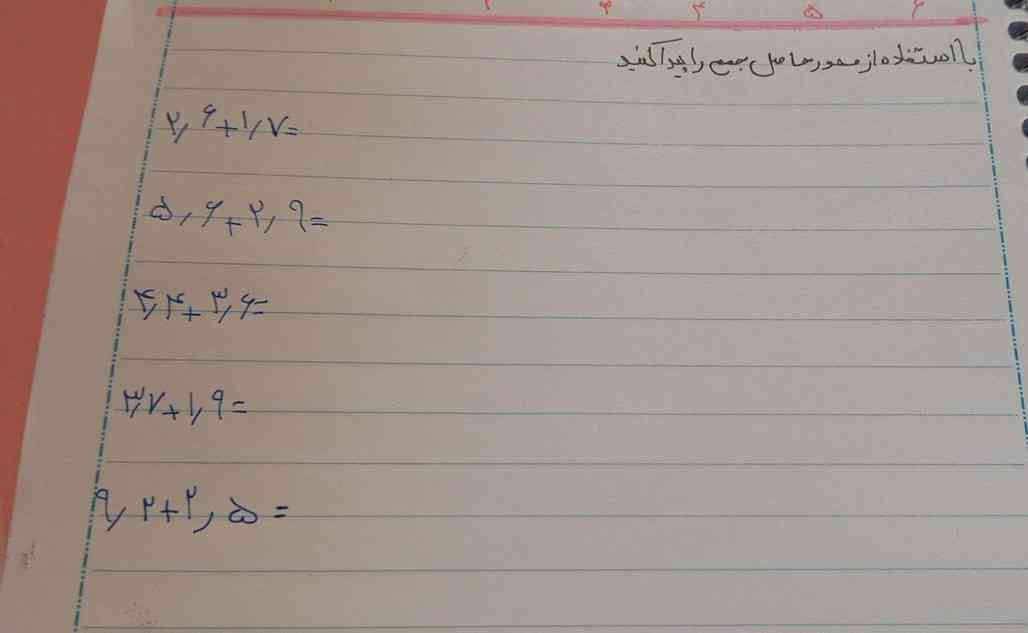 ۲ ۳ ۴ ۵ ۶
با استفاده از محور حاصل جمع را پیدا کنید
۲٫۶+۱٫۷=
۵٫۶+۲٫۹=
۴٫۴+۳٫۶=
۳٫۷+۱٫۹=
۹٫۲+۲٫۵=